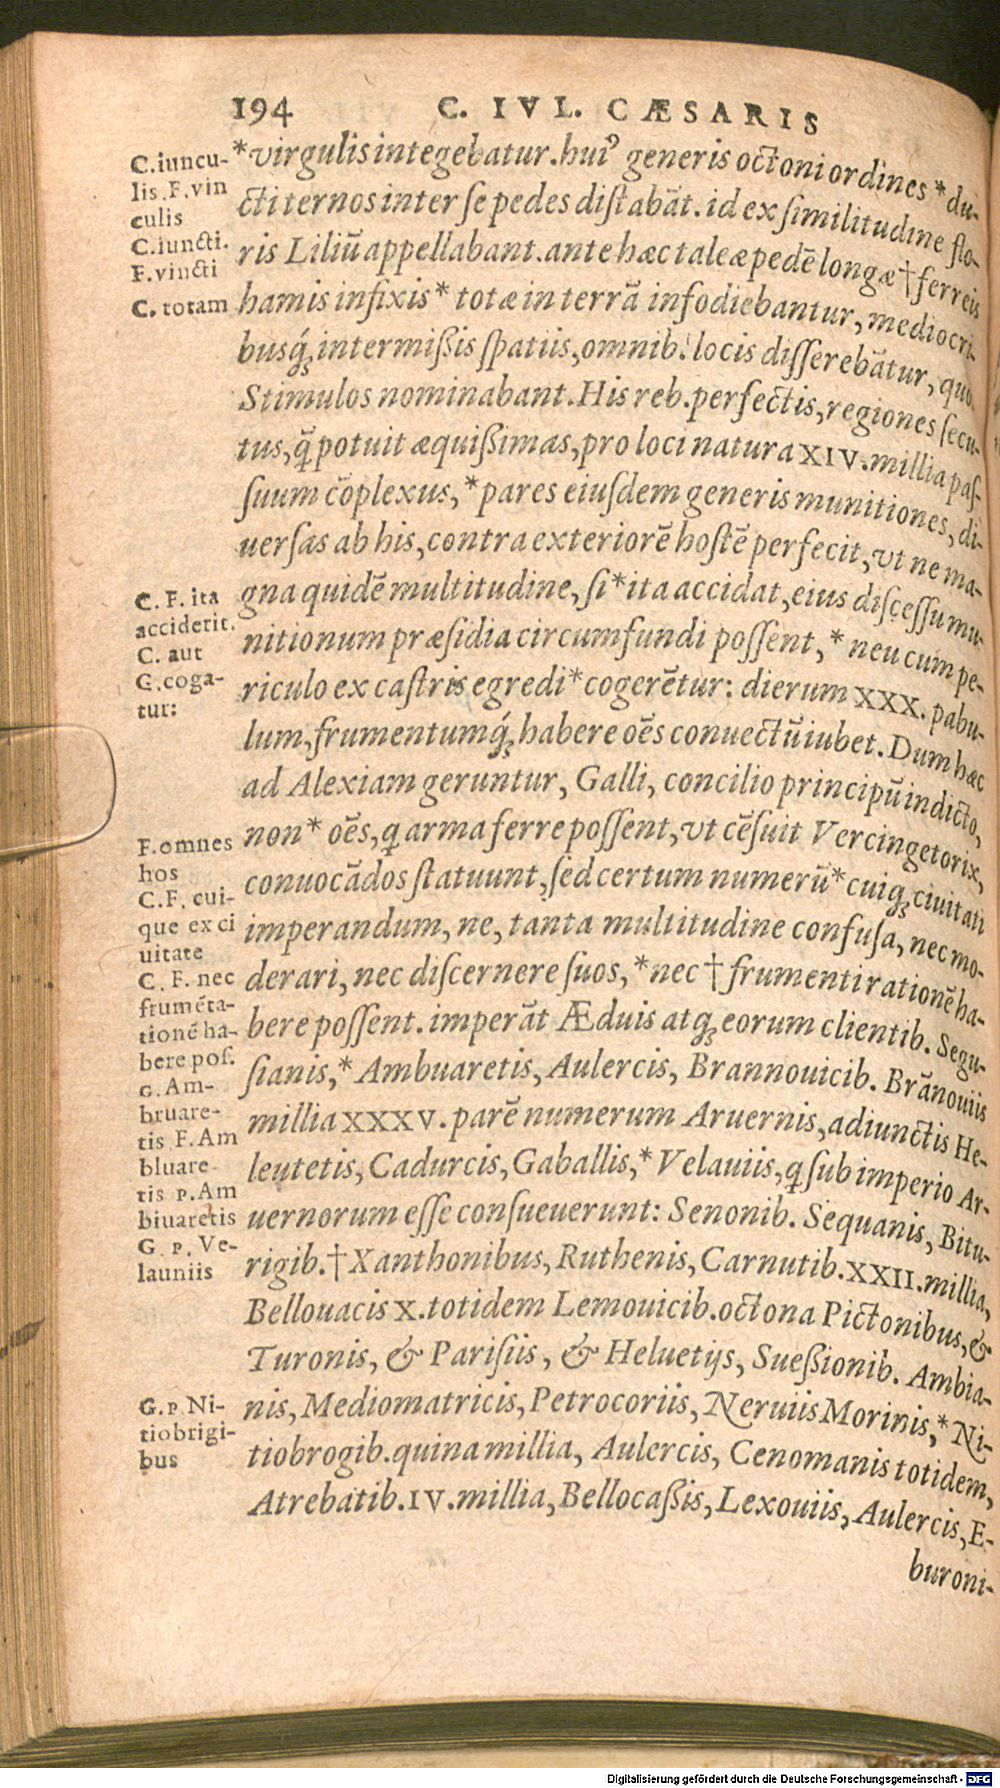 194 C. IVL. CÆSARIS
*virgulis integebatur. huiꝰ generis octoni ordines *du-
cti ternos inter se pedes distabāt. id ex similitudine flo-
ris Liliū appellabant. ante hæc taleæ pedē longæ † ferreis
hamis infixis * totæ in terrā infodiebantur, mediocri-
busq́; intermißis spatiis, omnib. locis disserebātur, quos
Stimulos nominabant. His reb. perfectis, regiones secu-
tus, q̄ potuit æquißimas, pro loci natura XIV. millia pas-
suum cōplexus, *pares eiusdem generis munitiones, di-
uersas ab his, contra exteriorē hostē perfecit, vt ne ma-
gna quidē multitudine, si *ita accidat, eius discessu mu-
nitionum præsidia circumfundi possent, * neu cum pe-
riculo ex castris egredi *cogerētur: dierum XXX. pabu-
lum, frumentumq́; habere oēs conuectū iubet. Dum hæc
ad Alexiam geruntur, Galli, concilio principū indicto,
non * oēs, q arma ferre possent, vt cēsuit Vercingetorix,
conuocādos statuunt, sed certum numerū *cuiq; ciuitati
imperandum, ne, tanta multitudine confusa, nec mo-
derari, nec discernere suos, *nec † frumenti rationē ha-
bere possent. imperāt Æduis atq; eorum clientib. Segu-
sianis, * Ambuaretis, Aulercis, Brannouicib. Brānouiis
millia XXXV. parē numerum Aruernis, adiunctis He-
leutetis, Cadurcis, Gaballis, * Velauiis, q sub imperio Ar-
uernorum esse consueuerunt: Senonib. Sequanis, Bitu-
rigib. † Xanthonibus, Ruthenis, Carnutib. XXII. millia,
Bellouacis X. totidem Lemouicib. octona Pictonibus, &
Turonis, & Parisiis, & Heluetijs, Sueßionib. Ambia-
nis, Mediomatricis, Petrocoriis, Neruiis Morinis, * Ni-
tiobrogib. quina millia, Aulercis, Cenomanis totidem,
Atrebatib. IV. millia, Bellocaßis, Lexouiis, Aulercis, E-
buroni-
C. iuncu-
lis. F. vin
culis
C. iuncti.
F. vincti
C. totam
C. F. ita
acciderit.
C. aut
C. coga-
tur:
F. omnes
hos
C. F. cui-
que ex ci
uitate
C. F. nec
frumēta-
tionē ha-
bere pos.
G. Am-
bruare-
tis F. Am
bluare-
tis P. Am
biuaretis
G. P. Ve-
launiis
G. P. Ni-
tiobrigi-
bus
Digitalisierung gefördert durch die Deutsche Forschungsgemeinschaft - DFG